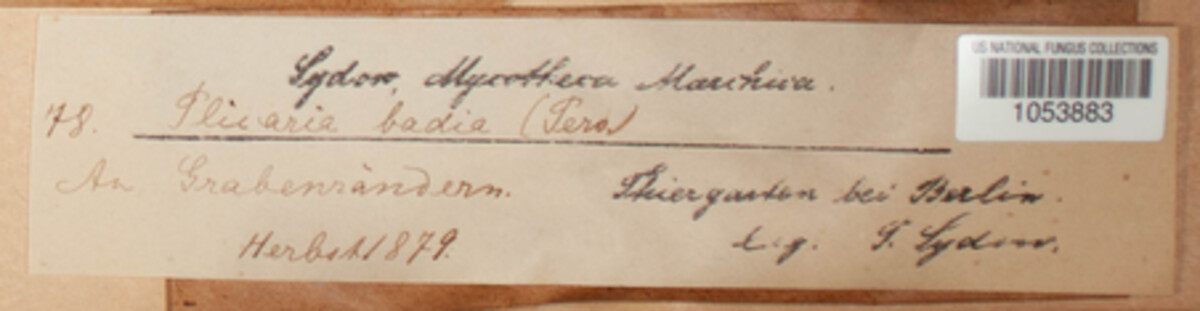 Sydow, Mycotheca Marchica.
US NATIONAL FUNGUS COLLECTIONS
1053883
78. Plicaria badia (Pers)
An Grabenrändern. Thiergarten bei Berlin.
Herbst 1879. leg. P. Sydow.